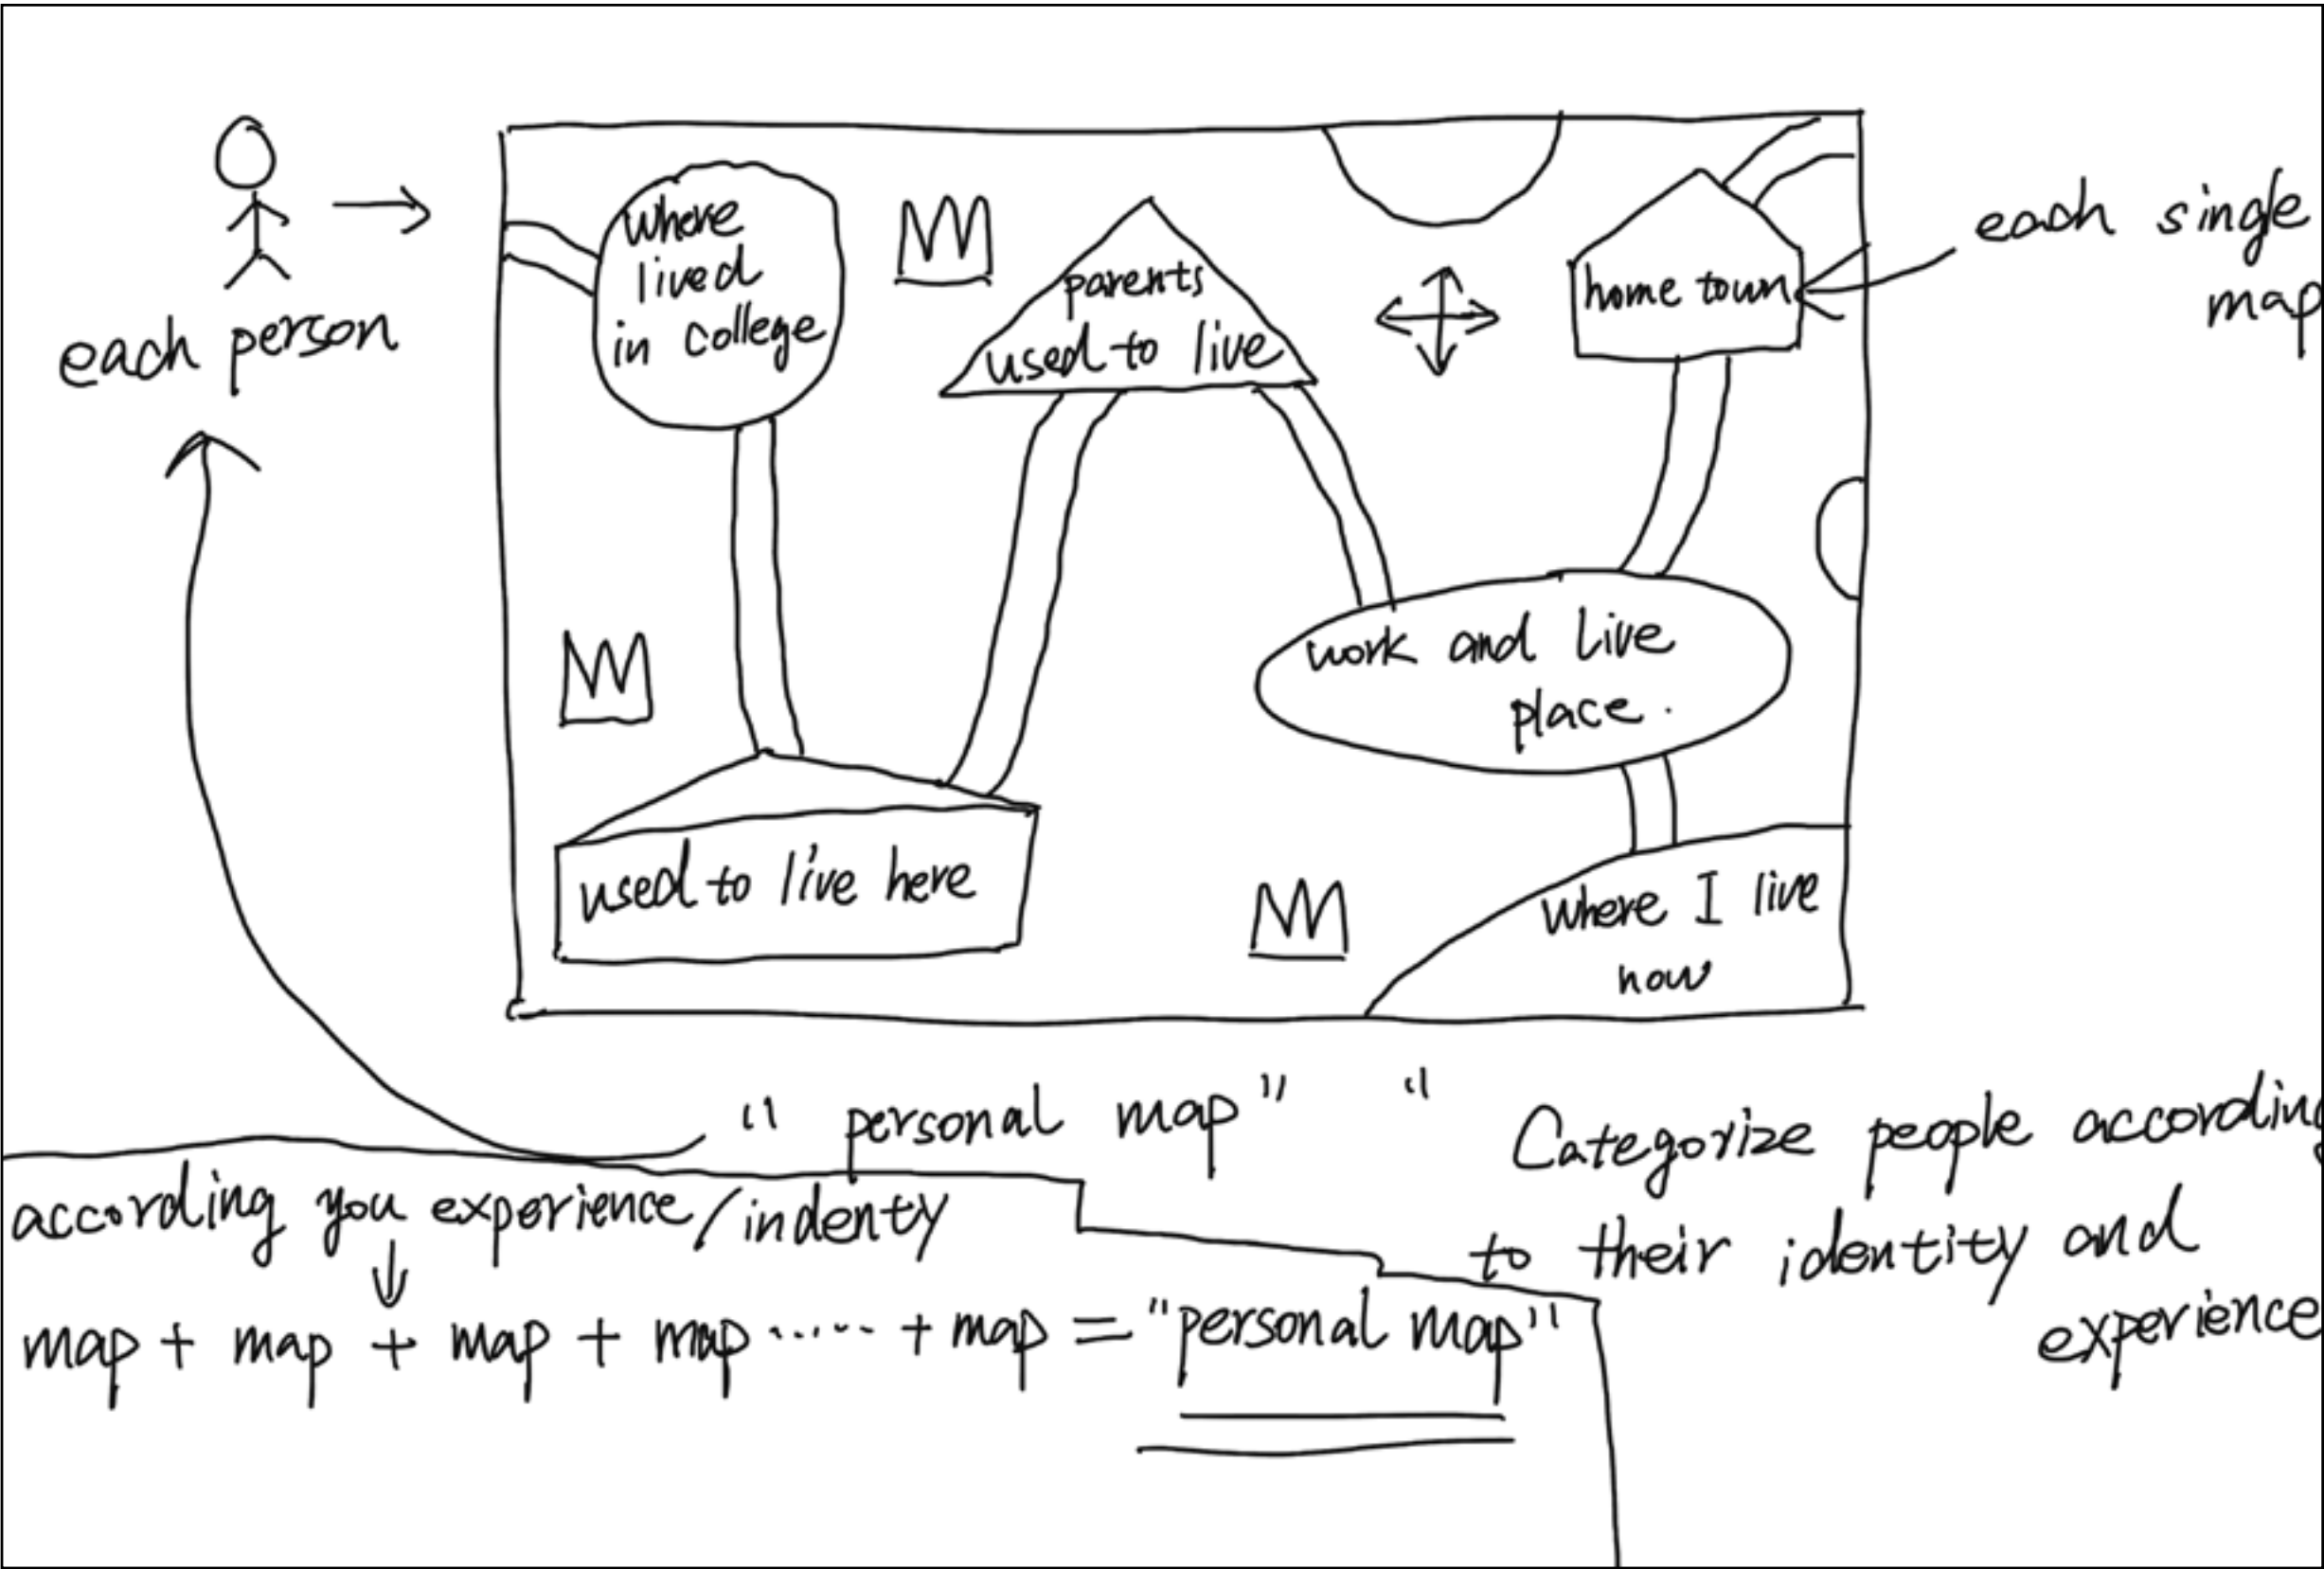 each person
where
lived
in college
parents
used to live
home town
each single
map
work and live
place.
used to live here
where I live
now
"personal map"
"
Categorize people according
to their identity and
experience
according you experience/indenty
map + map + map + map ...... + map = "personal map"